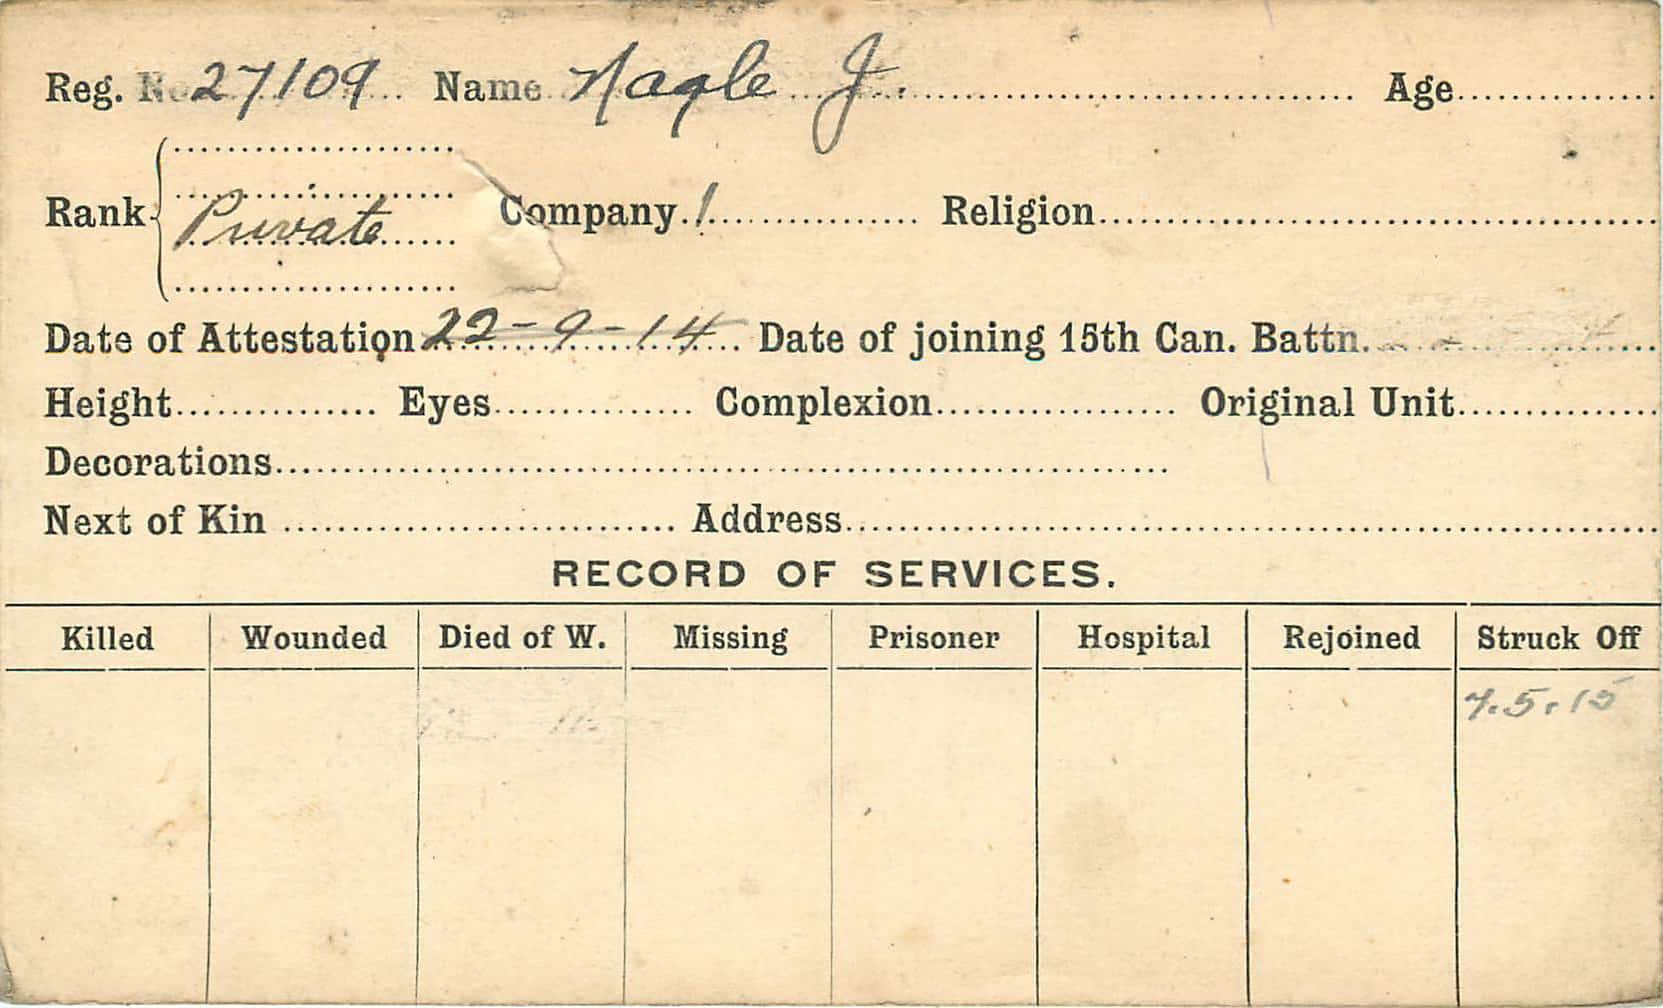 Reg. No. 27109 Name Nagle J. Age
Rank Private Company 1 Religion
Date of Attestation 22-9-14 Date of joining 15th Can. Battn.
Height Eyes Complexion Original Unit
Decorations
Next of Kin Address
RECORD OF SERVICES.
Killed Wounded Died of W. Missing Prisoner Hospital Rejoined Struck Off
7.5.15